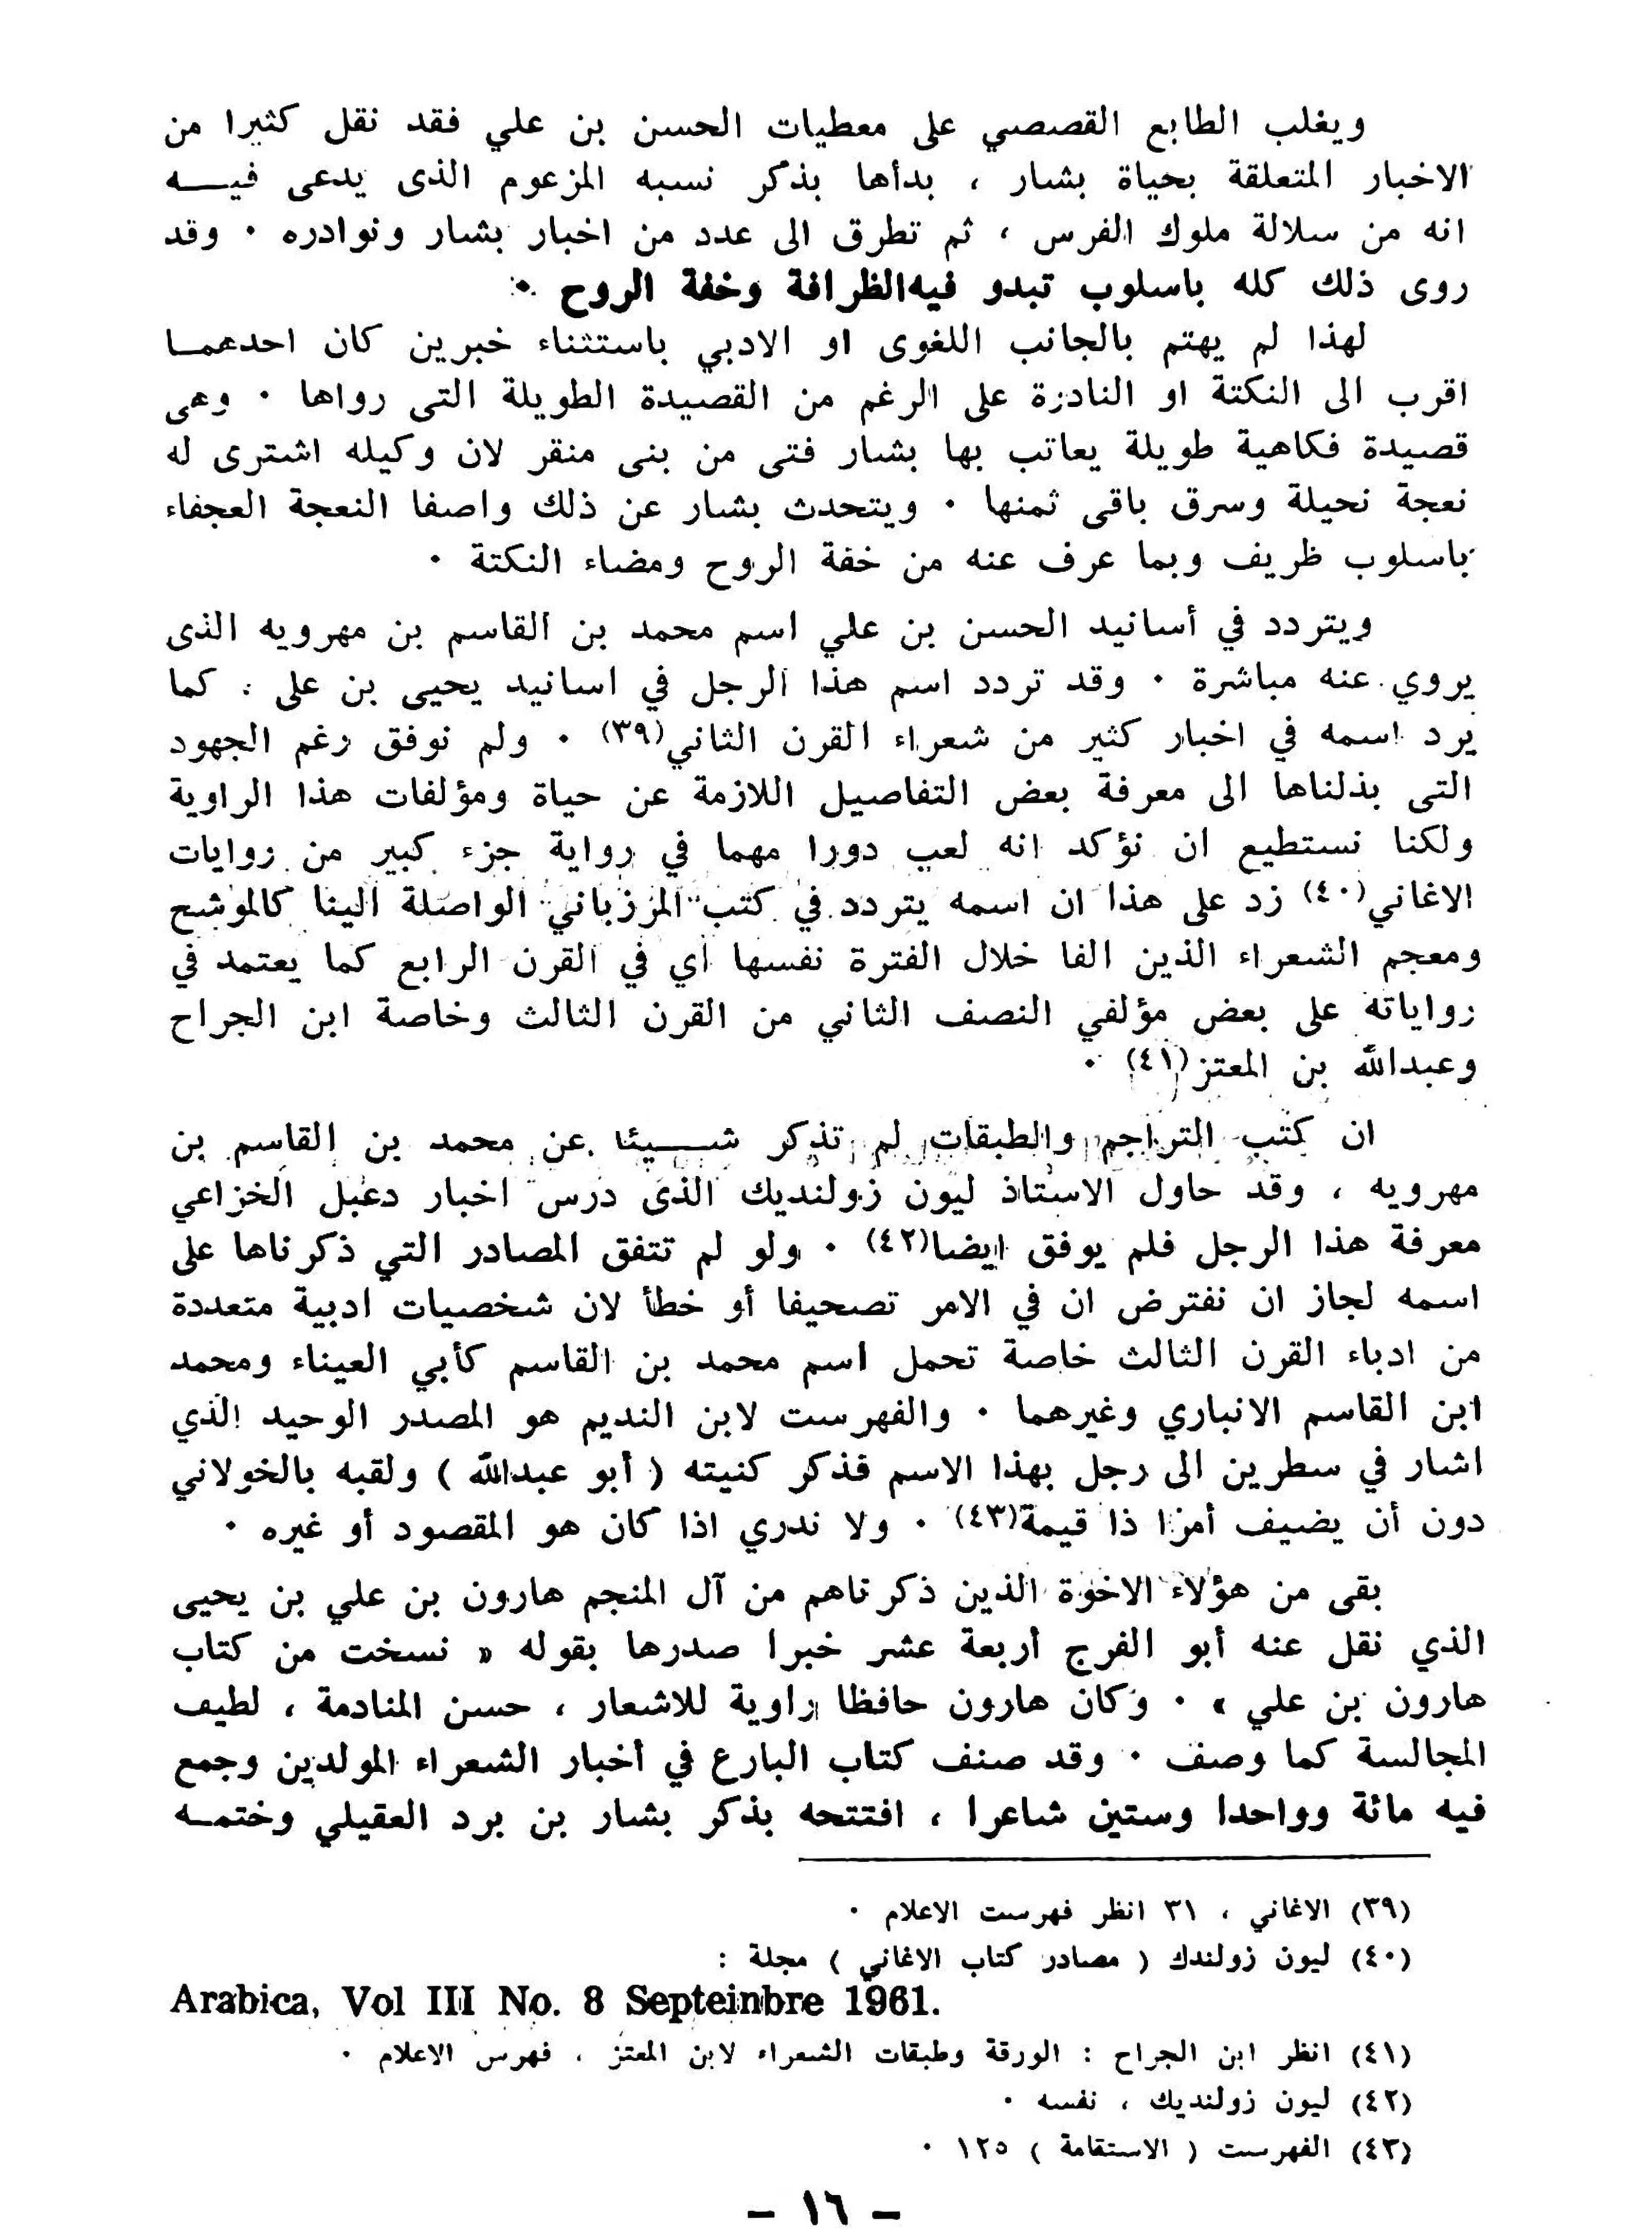 ويغلب الطابع القصصي على معطيات الحسن بن علي فقد نقل كثيرا من
الاخبار المتعلقة بحياة بشار ، بدأها بذكر نسبه المزعوم الذى يدعى فيـــه
انه من سلالة ملوك الفرس ، ثم تطرق الى عدد من اخبار بشار ونوادره ٠ وقد
روى ذلك كله باسلوب تبدو فيه الظرافة وخفة الروح ٠
لهذا لم يهتم بالجانب اللغوى او الادبي باستثناء خبرين كان احدهمــا
اقرب الى النكتة او النادرة على الرغم من القصيدة الطويلة التى رواها ٠ وهى
قصيدة فكاهية طويلة يعاتب بها بشار فتى من بنى منقر لان وكيله اشترى له
نعجة نحيلة وسرق باقى ثمنها ٠ ويتحدث بشار عن ذلك واصفا النعجة العجفاء
باسلوب ظريف وبما عرف عنه من خفة الروح ومضاء النكتة ٠
ويتردد في أسانيد الحسن بن علي اسم محمد بن القاسم بن مهرويه الذى
يروي عنه مباشرة ٠ وقد تردد اسم هذا الرجل في اسانيد يحيى بن على ، كما
يرد اسمه في اخبار كثير من شعراء القرن الثاني(٣٩) ٠ ولم نوفق رغم الجهود
التى بذلناها الى معرفة بعض التفاصيل اللازمة عن حياة ومؤلفات هذا الراوية
ولكنا نستطيع ان نؤكد انه لعب دورا مهما في رواية جزء كبير من روايات
الاغاني(٤٠) زد على هذا ان اسمه يتردد في كتب المرزباني الواصلة الينا كالموشح
ومعجم الشعراء الذين الفا خلال الفترة نفسها أي في القرن الرابع كما يعتمد في
رواياته على بعض مؤلفي النصف الثاني من القرن الثالث وخاصة ابن الجراح
وعبدالله بن المعتز(٤١) ٠
ان كتب التراجم والطبقات لم تذكر شـــيئا عن محمد بن القاسم بن
مهرويه ، وقد حاول الاستاذ ليون زولنديك الذى درس اخبار دعبل الخزاعي
معرفة هذا الرجل فلم يوفق ايضا(٤٢) ٠ ولو لم تتفق المصادر التي ذكرناها على
اسمه لجاز ان نفترض ان في الامر تصحيفا أو خطأ لان شخصيات ادبية متعددة
من ادباء القرن الثالث خاصة تحمل اسم محمد بن القاسم كأبي العيناء ومحمد
ابن القاسم الانباري وغيرهما ٠ والفهرست لابن النديم هو المصدر الوحيد الذي
اشار في سطرين الى رجل بهذا الاسم فذكر كنيته ( أبو عبدالله ) ولقبه بالخولاني
دون أن يضيف أمرا ذا قيمة(٤٣) ٠ ولا ندري اذا كان هو المقصود أو غيره ٠
بقى من هؤلاء الاخوة الذين ذكرناهم من آل المنجم هارون بن علي بن يحيى
الذي نقل عنه أبو الفرج أربعة عشر خبرا صدرها بقوله « نسخت من كتاب
هارون بن علي » ٠ وكان هارون حافظا راوية للاشعار ، حسن المنادمة ، لطيف
المجالسة كما وصف ٠ وقد صنف كتاب البارع في أخبار الشعراء المولدين وجمع
فيه مائة وواحدا وستين شاعرا ، افتتحه بذكر بشار بن برد العقيلي وختمــه
(٣٩) الاغاني ، ٣١ انظر فهرست الاعلام ٠
(٤٠) ليون زولندك ( مصادر كتاب الاغاني ) مجلة :
Arabica, Vol III No. 8 Septeinbre 1961.
(٤١) انظر ابن الجراح : الورقة وطبقات الشعراء لابن المعتز ، فهرس الاعلام ٠
(٤٢) ليون زولنديك ، نفسه ٠
(٤٣) الفهرست ( الاستقامة ) ١٢٥ ٠
– ١٦ –